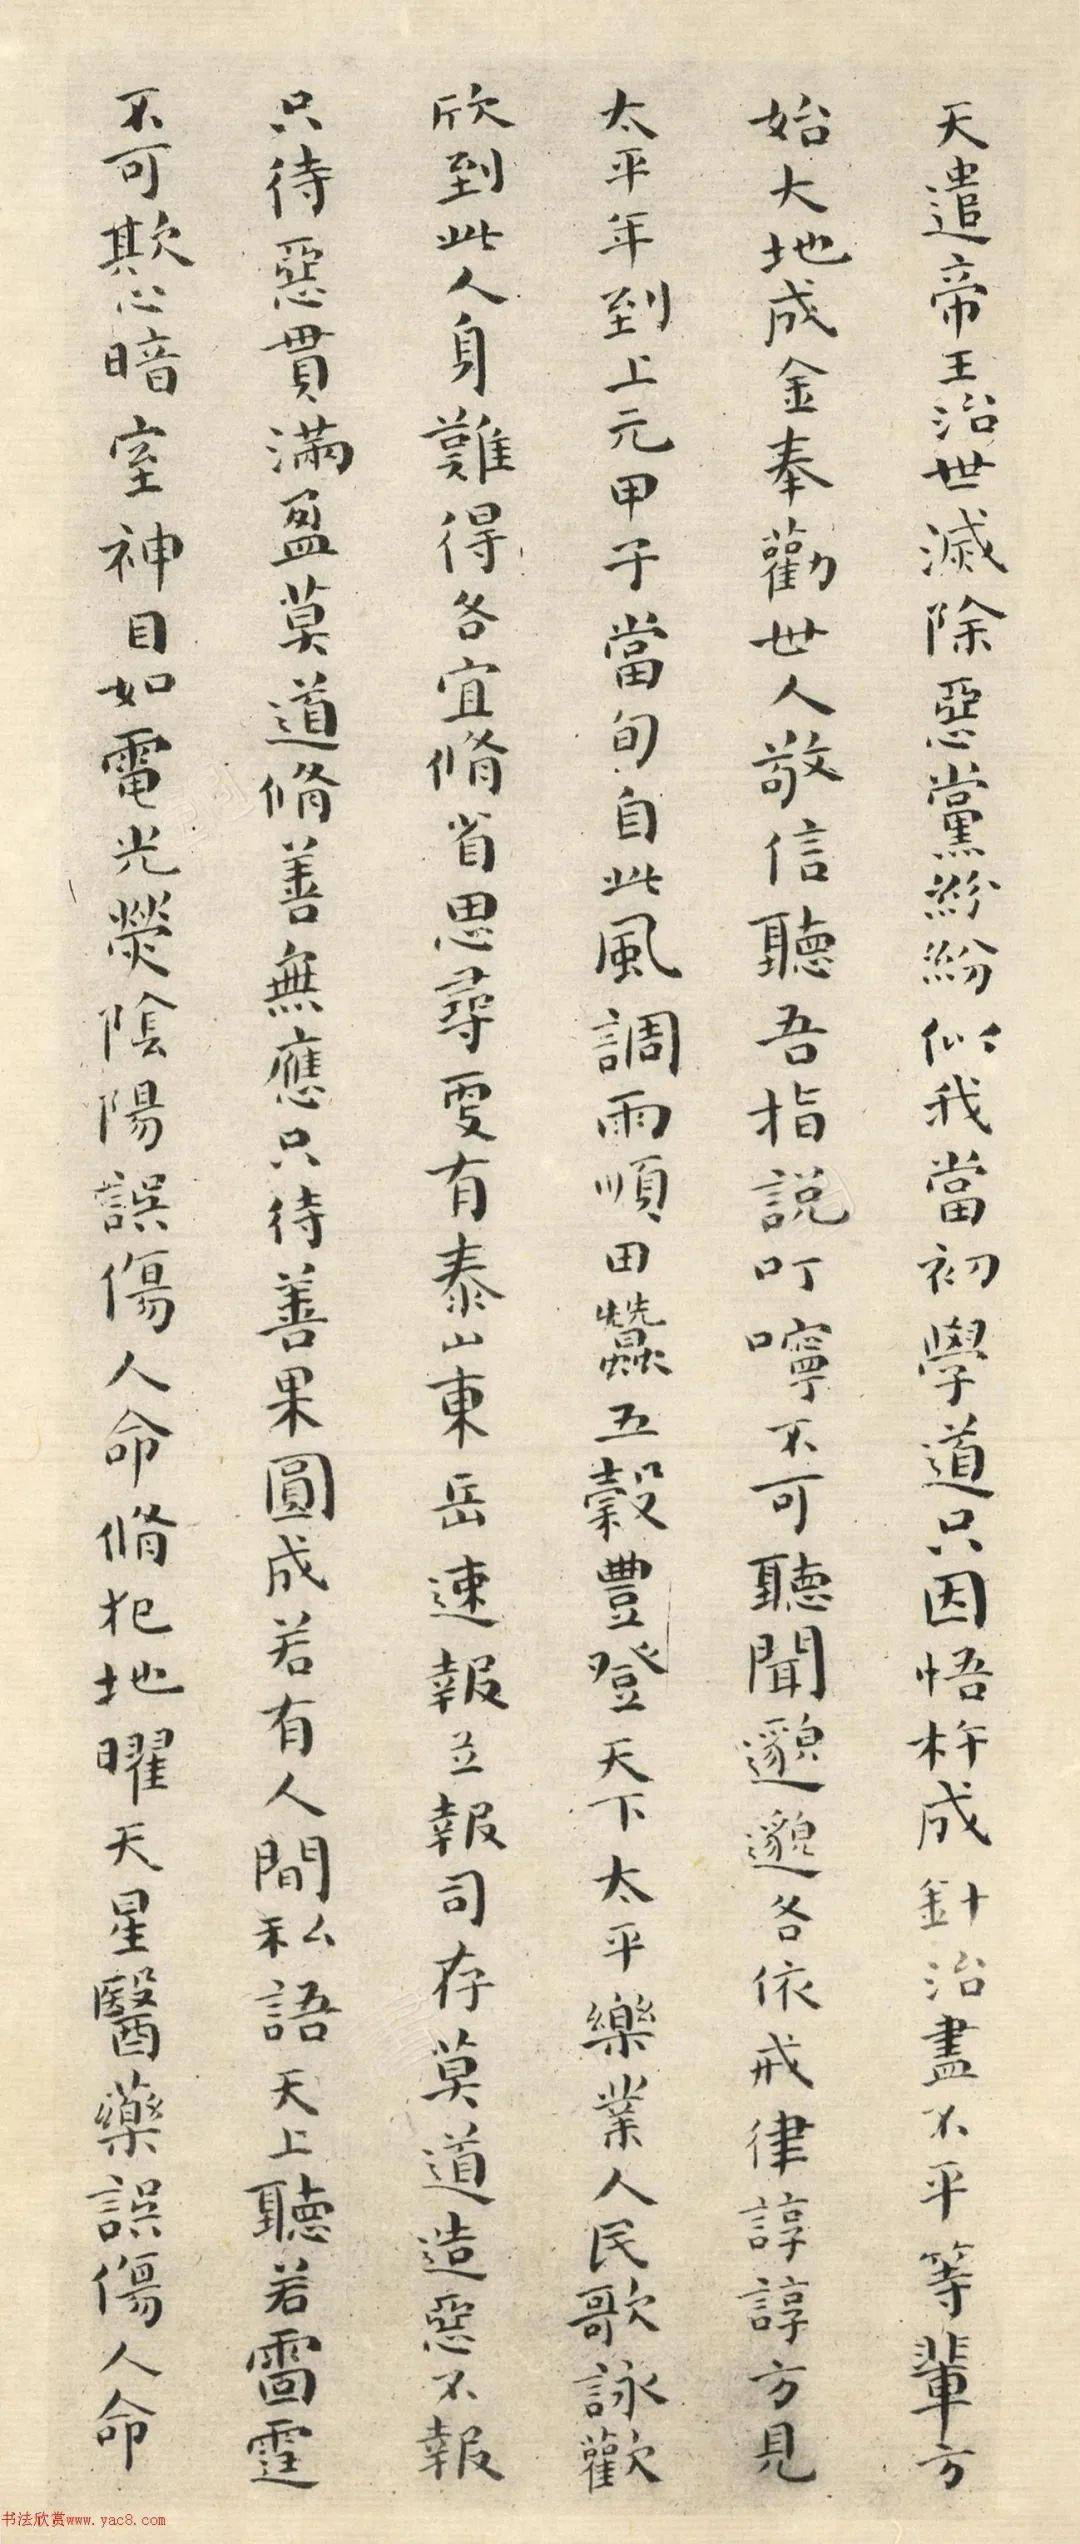 天遣帝王治世滅除惡黨紛紛似我當初學道只因悟杵成針治盡不平等輩方
始大地成金奉勸世人敬信聽吾指說叮嚀不可聽聞邈邈各依戒律諄諄方見
太平年到上元甲子當旬自此風調雨順田蠶五穀豐登天下太平樂業人民歌詠歡
欣到此人身難得各宜脩省思尋更有泰山東岳速報立報司存莫道造惡不報
只待惡貫滿盈莫道脩善無應只待善果圓成若有人間私語天上聽若雷霆
不可欺心暗室神目如電光熒陰陽誤傷人命脩犯地曜天星醫藥誤傷人命
书法欣赏www.yac8.com